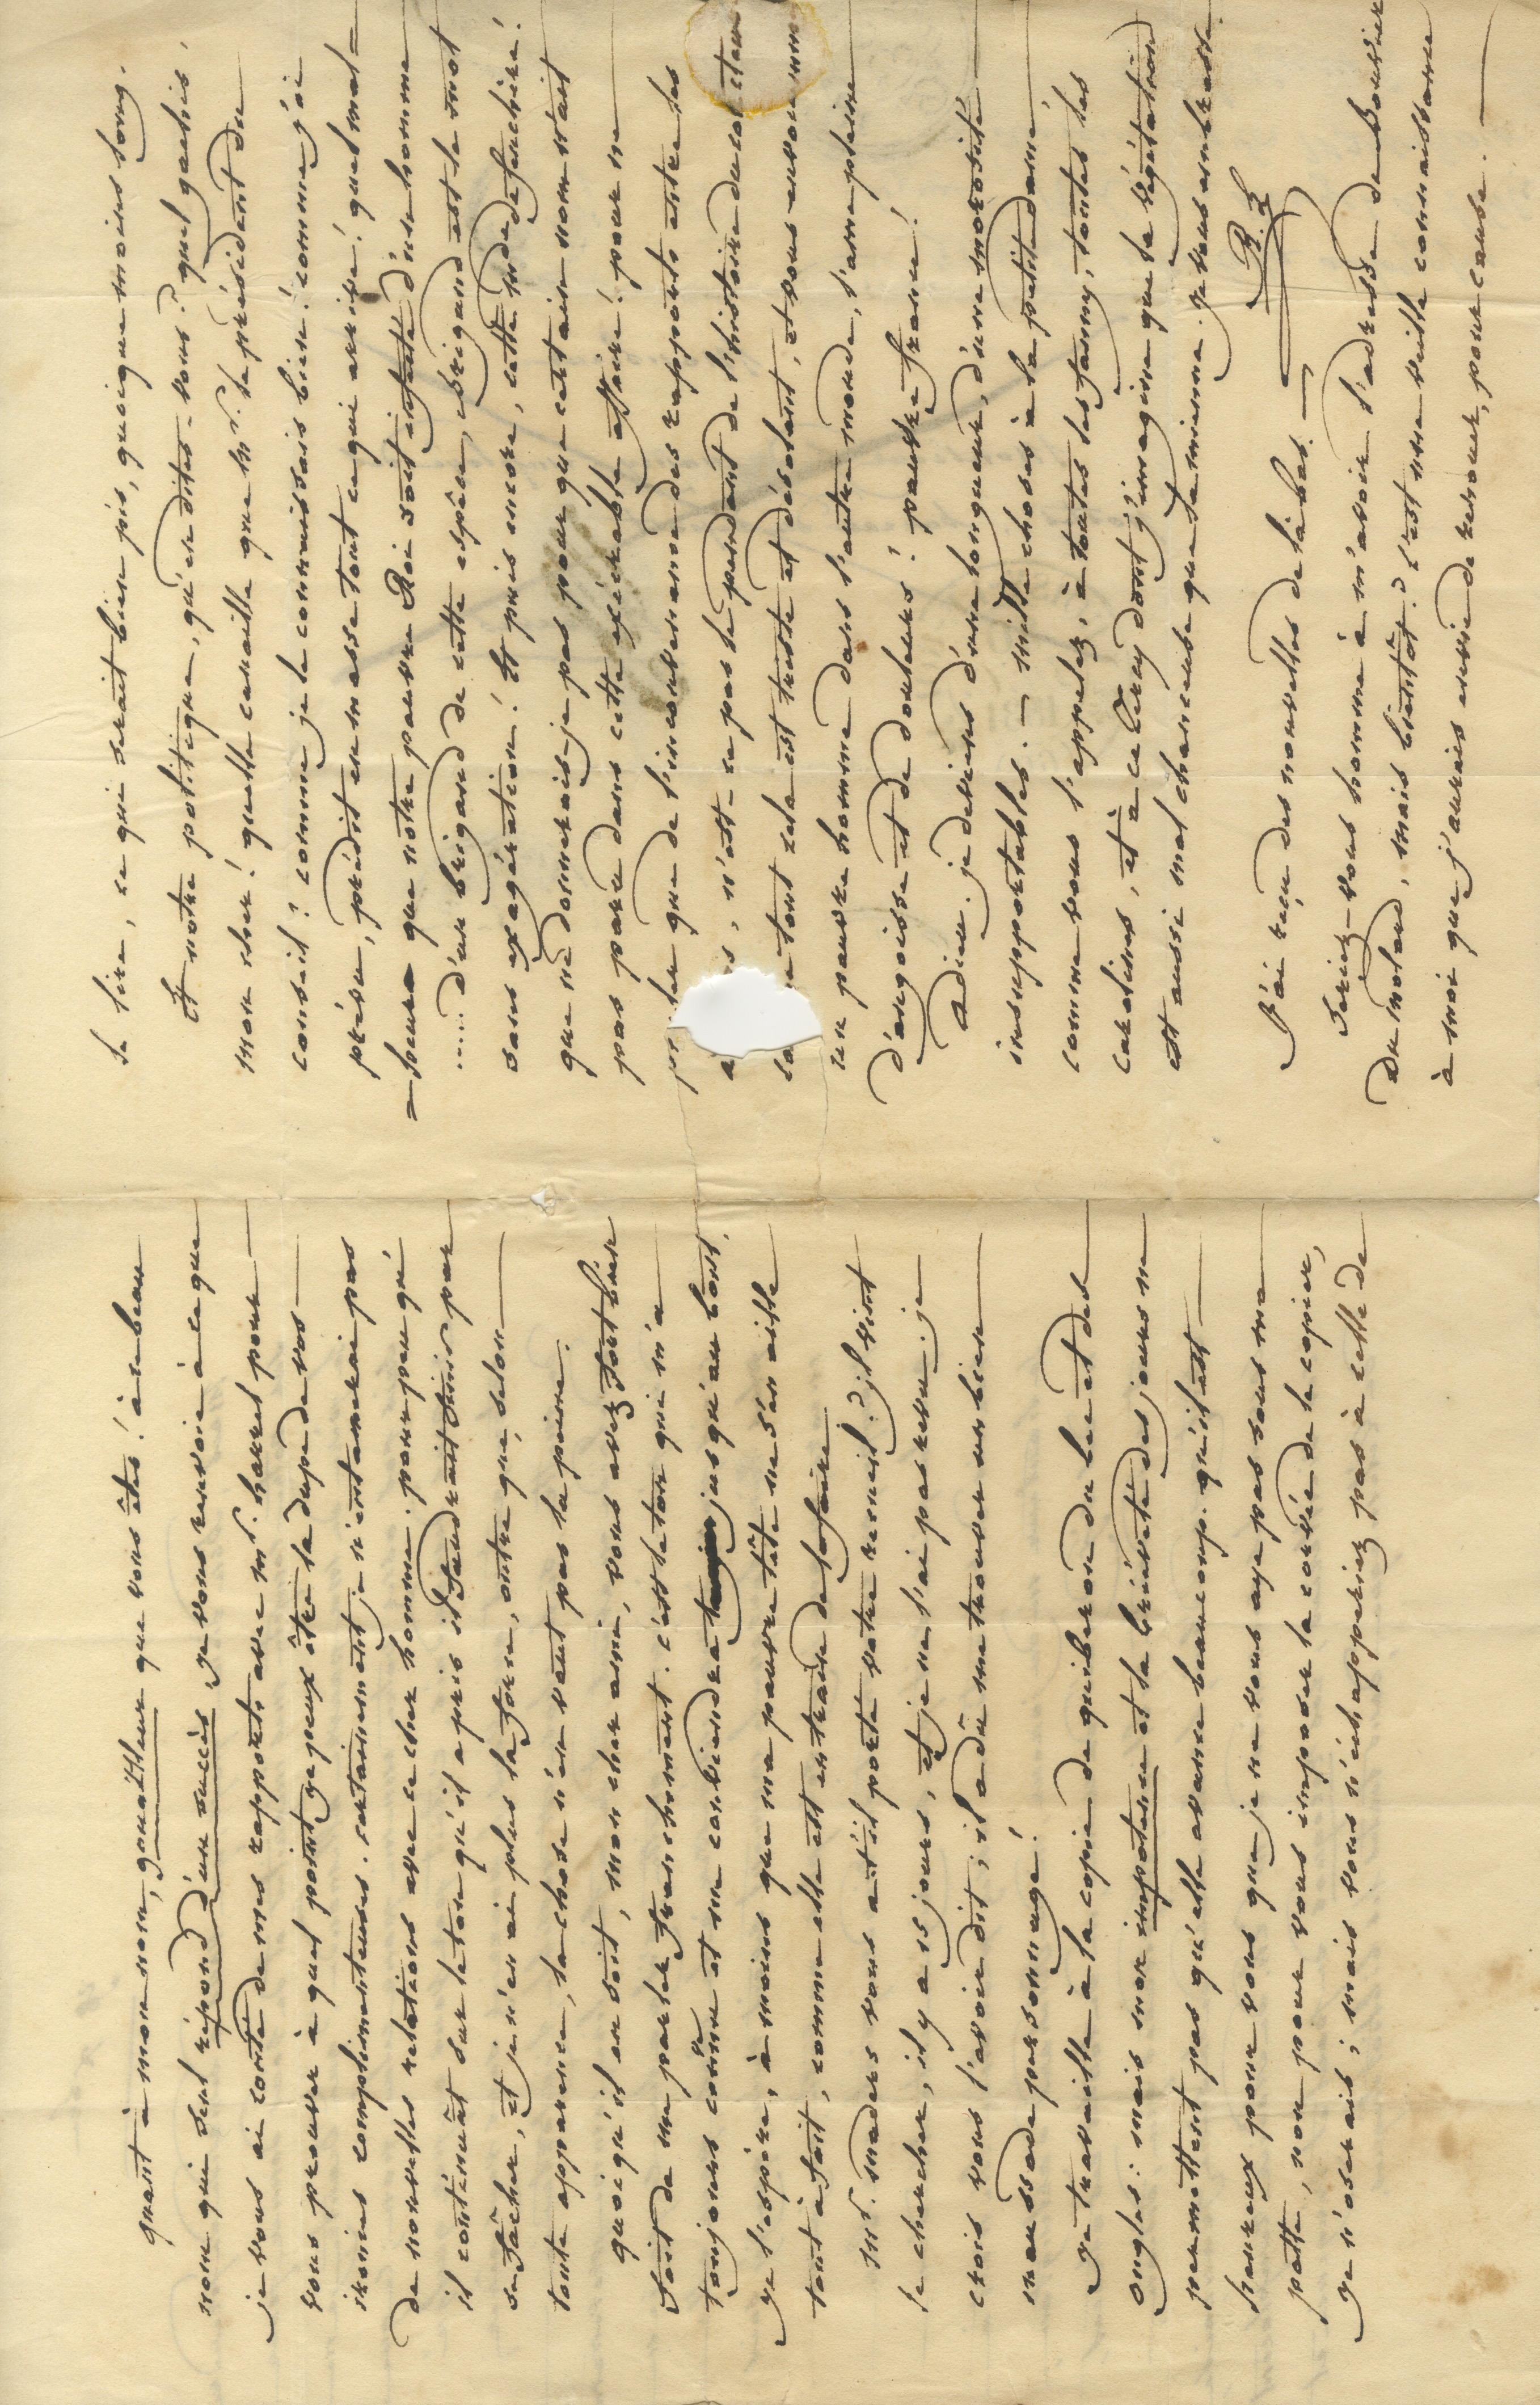 quant à mon nom, gouailleur que vous êtes! à un beau
nom qui sent répond d'un succès je vous renvoie à ce que
je vous ai conté de mes rapports avec mr. harel pour
vous prouver à quel point je peux être la dupe de vos
ironies complimenteuses. certainement je n'entamerai pas
de nouvelles relations avec ce cher homme. pour peu qu'
il continuât sur le ton qu'il a pris il faudrait finir par
se fâcher, et je n'en ai plus la force, outre que, selon
toute apparence, la chose n'en vaut pas la peine.
quoiqu'il en soit, mon cher ami, vous avez fort bien
fait de me parler franchement. c'est le ton qui m'a
toujours convenu et me conviendra jusqu'au bout,
je l'espère, à moins que ma pauvre tête ne s'en aille
tout à fait, comme elle est entrain de le faire
mr. maders vous a-t-il porté votre recueil? il vint
le chercher, il y a 15 jours, et je ne l'ai pas revu. je
crois vous l'avoir dit; il a dû me trouver un bien
maussade personnage!
je travaille à la copie de quiberon du bec et des
ongles: mais mon impotence et la brièveté des jours ne
permettent pas qu'elle avance beaucoup. qu'il est
heureux pour vous que je ne vous aye pas sous ma
patte, non pour vous imposer la corvée de la copier,
je n'oserais; mais vous n'échapperiez pas à celle de
la lire, ce qui serait bien pis, quoique moins long.
Et notre politique, qu'en dites-vous? quel gachis,
mon cher! quelle canaille que mr. le président du
conseil! comme je le connaissais bien! comme j'ai
prévu, prédit en masse tout ce qui arrive! quel mal=
=heur que notre pauvre Roi soit infatué d'un homme
..... d'un brigand de cette espèce, brigand est le mot
sans exagération! Et puis encore, cette mde de feuchère!
que ne donnerais-je pas pour que certain nom n'eut
pas paru dans cette exécrable affaire! pour ne
parler que de l'inconvenance des rapports entre les
n'est-ce pas le pendant de l'histoire du
tout cela est triste et désolant, et vous envoie
un pauvre homme dans l'autre monde, l'ame pleine
d'angoisse et de douleurs! pauvre france!
adieu. je deviens d'une longueur, d'une morosité
insupportables. — mille choses à la petite dame
comme vous l'appelez, à toutes les fanny, toutes les
carolines, et à ce Cercy dont j'imagine que la végétation
est aussi malchanceuse que la mienne. je vous embrasse.
R. L
J'ai reçu des nouvelles de lisbes. —
Seriez-vous homme à m'avoir l'adresse de Bouvier
dumolard, mais bientôt? c'est une vieille connaissance
à moi que j'aurais envie de renouer, pour cause. —